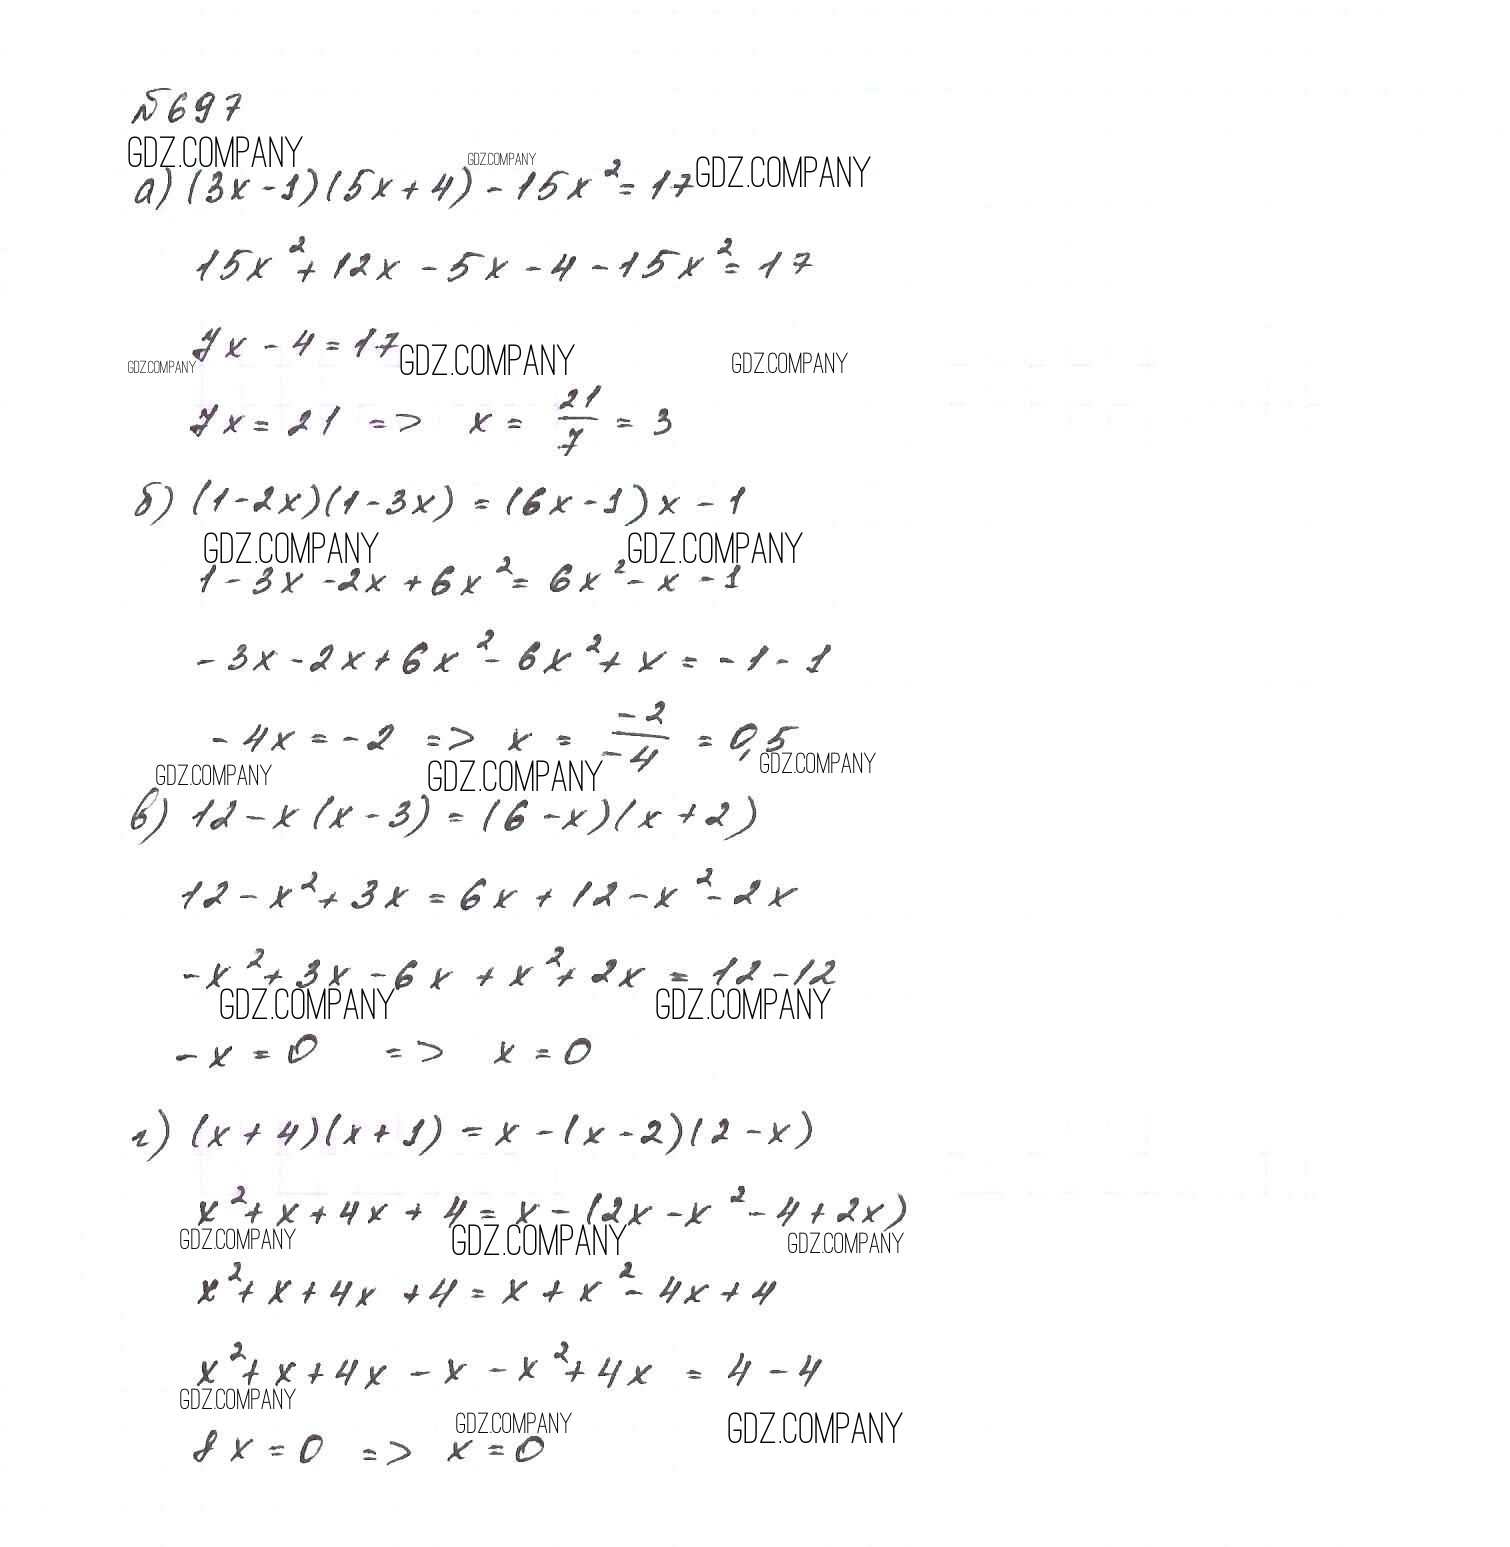 №697
GDZ.COMPANY
GDZ.COMPANY
GDZ.COMPANY
а) (3x-1)(5x+4)-15x²=17
15x²+12x-5x-4-15x²=17
7x-4=17
GDZ.COMPANY
GDZ.COMPANY
GDZ.COMPANY
7x=21 => x= 21/7 = 3
б) (1-2x)(1-3x)=(6x-1)x-1
GDZ.COMPANY
GDZ.COMPANY
1-3x-2x+6x²=6x²-x-1
-3x-2x+6x²-6x²+x=-1-1
-4x=-2 => x= -2/-4 = 0,5
GDZ.COMPANY
GDZ.COMPANY
GDZ.COMPANY
в) 12-x(x-3)=(6-x)(x+2)
12-x²+3x=6x+12-x²-2x
-x²+3x-6x+x²+2x=12-12
GDZ.COMPANY
GDZ.COMPANY
-x=0 => x=0
г) (x+4)(x+1)=x-(x-2)(2-x)
x²+x+4x+4=x-(2x-x²-4+2x)
GDZ.COMPANY
GDZ.COMPANY
GDZ.COMPANY
x²+x+4x+4=x+x²-4x+4
x²+x+4x-x-x²+4x=4-4
GDZ.COMPANY
GDZ.COMPANY
GDZ.COMPANY
8x=0 => x=0